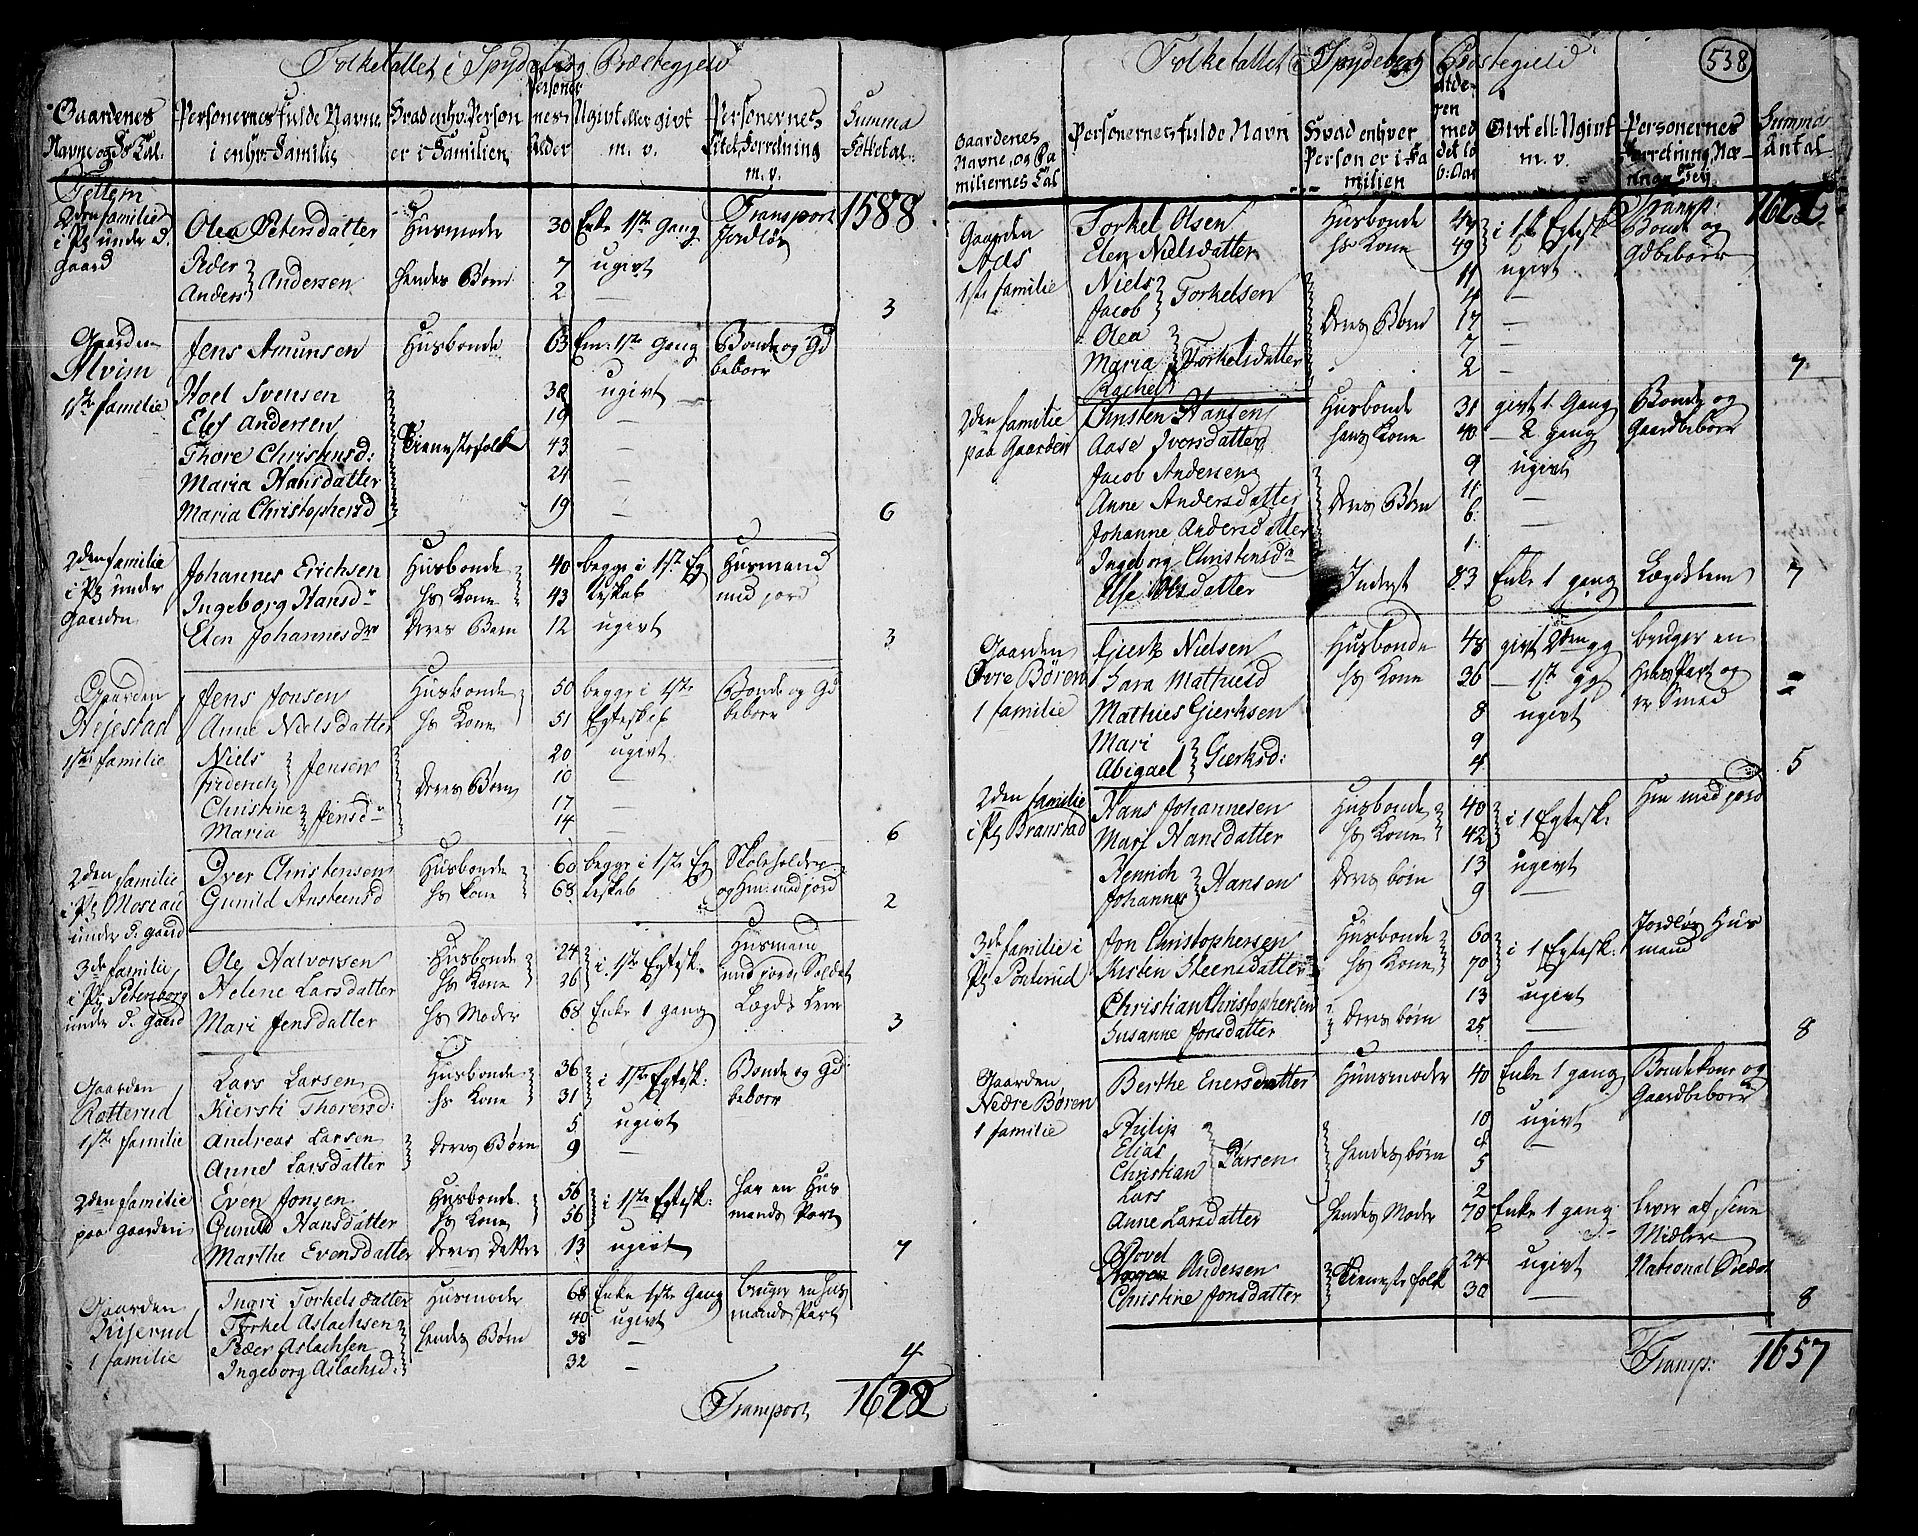 Folketallet i Spydeberg Præstegield
Gaardenes Navne og Fæ Tal. | Personernes fulde Navne i enhv: Familie | Hvad enhv. Person er i Familien | Personernes Alder | Ugivt eller givt m. v. | Personernes Titel, Forretning m. v. | Summa Folketal:
Tettem Transport 1588
2den familie Olea Petersdatter Huusmoder 30 Enke 1ste Gang Jordløs
i Pl under d. Peder } Andersen hendes Børn 7 ugivt
Gaard Anders 2 — 3
Gaarden Jens Amunsen Husbonde 63 Em: 1ste Gang Bonde og Gd
Alvim beboer
1ste familie Noel Svensen 38 ugivt
Elef Andersen 19 —
Thore Christensd: Tienestefolk 43 —
Maria Hansdatter 24 —
Maria Christophersd 19 — 6
2den familie Johannes Erichsen Husbonde 40 begge i 1ste Eg Husmand
i Pl under Ingeborg Hansdr hs Kone 43 teskab med jord
Gaarden Elen Johannesdr Deres Barn 12 ugivt 3
Gaarden Jens Jonsen Husbonde 50 begge i 1ste Bonde og Gd
Anne Nielsdatter hs Kone 51 Egteskb beboer
1ste familie Niels } Jensen 20 ugivt
Friderich Deres Børn 10 —
Christine } Jensdr 17 —
Maria 14 — 6
2den familie Iver Christensen Husbonde 60 begge i 1ste Eg Skoleholder
i Pl Moseau Gunild Ansteensd hs Kone 68 teskab og Hm: med jord 2
under d: gaard
3de familie Ole Halvorsen Husbonde 24 } i 1ste Egtesk. Husmand
i Pl Petersborg Helene Larsdatter hs Kone 26 med jord Soldat
under d. gaard Mari Jensdatter hs Moder 68 Enke 1 gang Lægds Lem 3
Gaarden Lars Larsen Husbonde 36 } i 1ste Egtesk: Bonde og Gd:
Rotterud Kiersti Thoresd: hs Kone 31 beboer
1ste familie Andreas Larsen } Deres Børn 5 ugivt
Anne Larsdatter 9 —
2den familie Even Jonsen Husbonde 56 } i 1ste Egtesk: har en Hus
paa gaarden Gunild Hansdatter hs Kone 56 mands Part
Marthe Evensdatter Deres Datter 13 ugivt 7
Gaarden Ingri Torkelsdatter Husmoder 68 Enke 1ste Gang bruger en hus
Torkel Aslachsen 40 ugivt mands Part
1 familie Peder Aslachsen hendes Børn 38 —
Ingeborg Aslachsd: 32 — 4
Transport 1622
538
Folketallet i Spydeberg Præstegield
Gaardenes Navne, og Familiernes Tal | Personernes fulde Navn | Hvad enhver Person er i Familien | Alderen med det løb: Aar | Givt ell: Ugivt m. v. | Personernes Forretning, Næring, Tej | Summa Antal
Transp: 1622
Gaarden Torkel Olsen Husbonde } i 1ste Egtesk Bonde og
Aas Elen Nielsdatter hs Kone 49 Gdbeboer
1ste familie Niels } Torkelsen 11 ugivt
Jacob 4 —
Olea Deres Børn 17 —
Maria } Torkelsdatter 7 —
Rachel 2 — 7
2den familie Christen Hansen Husbonde 31 givt 1 Gang Bonde og
paa Gaarden Aase Iversdatter hans Kone 40 — 2 gang Gaardbeboer
Jacob Andersen 9 ugivt
Anne Andersdatter Deres Børn 11 —
Johanne Andersdatter 6 —
Ingeborg Christensdr 1
Else Olsdatter Inderst 83 Enke 1 gang Lægdslem 7
Gaarden Gierk Nielsen Husbonde 48 givt 2den gg bruger en
Øvre Børen Sara Mathiesd hs Kone 36 — 1st gg Part og
1 familie Mathies Gierksen 8 ugivt er Smed
Mari } Gierksd: 9
Abigael 4 5
2den familie Hans Johannesen Husbonde 40 } i 1 Egtesk: Hm med jord
i Pl Branstad Mari Hansdatter hs Kone 42
Henrich } Hansen Deres børn 13 ugivt
Johannes 9 —
3de familie i Jon Christophersen Husbonde 60 } i 1 Egtesk: Jordløs Hus
Pl Kirsten Steensdatter hs Kone 70 mand
Christian Christophersen } Deres børn 13 ugivt
Susanne Jonsdatter 25 — 8
Gaarden Berthe Enersdatter Huusmoder 40 Enke 1 gang Bondekone og
Nedre Børen Gaardbeboer
1 familie Philip 10 ugivt
Elias } Larsen hendes børn 8 —
Christian 5
Lars 2
Anne Larsdatter hendes Moder 70 Enke 1 gang lever af sine
Midler
Povel Andersen } Tienestefolk 24 ugivt National Soldat
Christine Jonsdatter 30 — 8
Transp: 1657